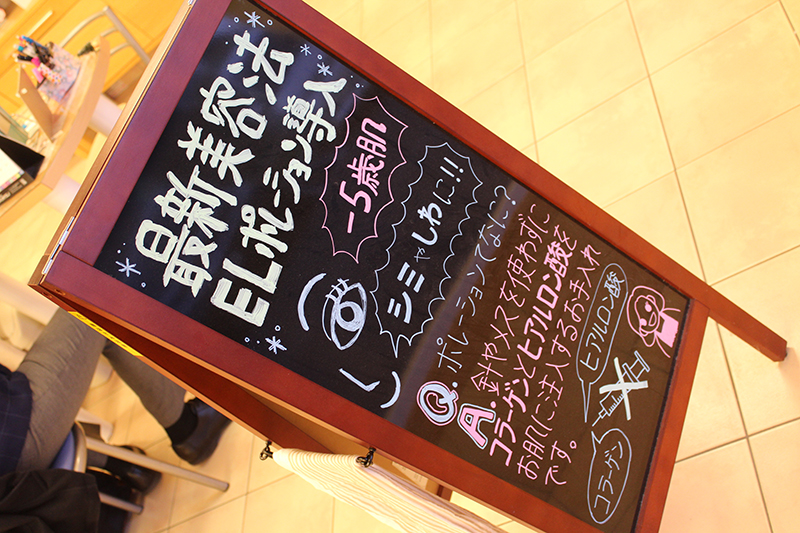 最新美容法
ELポレーション導入
−5歳肌
シミやしわに!!
Q.ポレーションてなに?
A.針やメスを使わずに
コラーゲンとヒアルロン酸を
お肌に注入するお手入れ
です。
ヒアルロン酸
コラーゲン